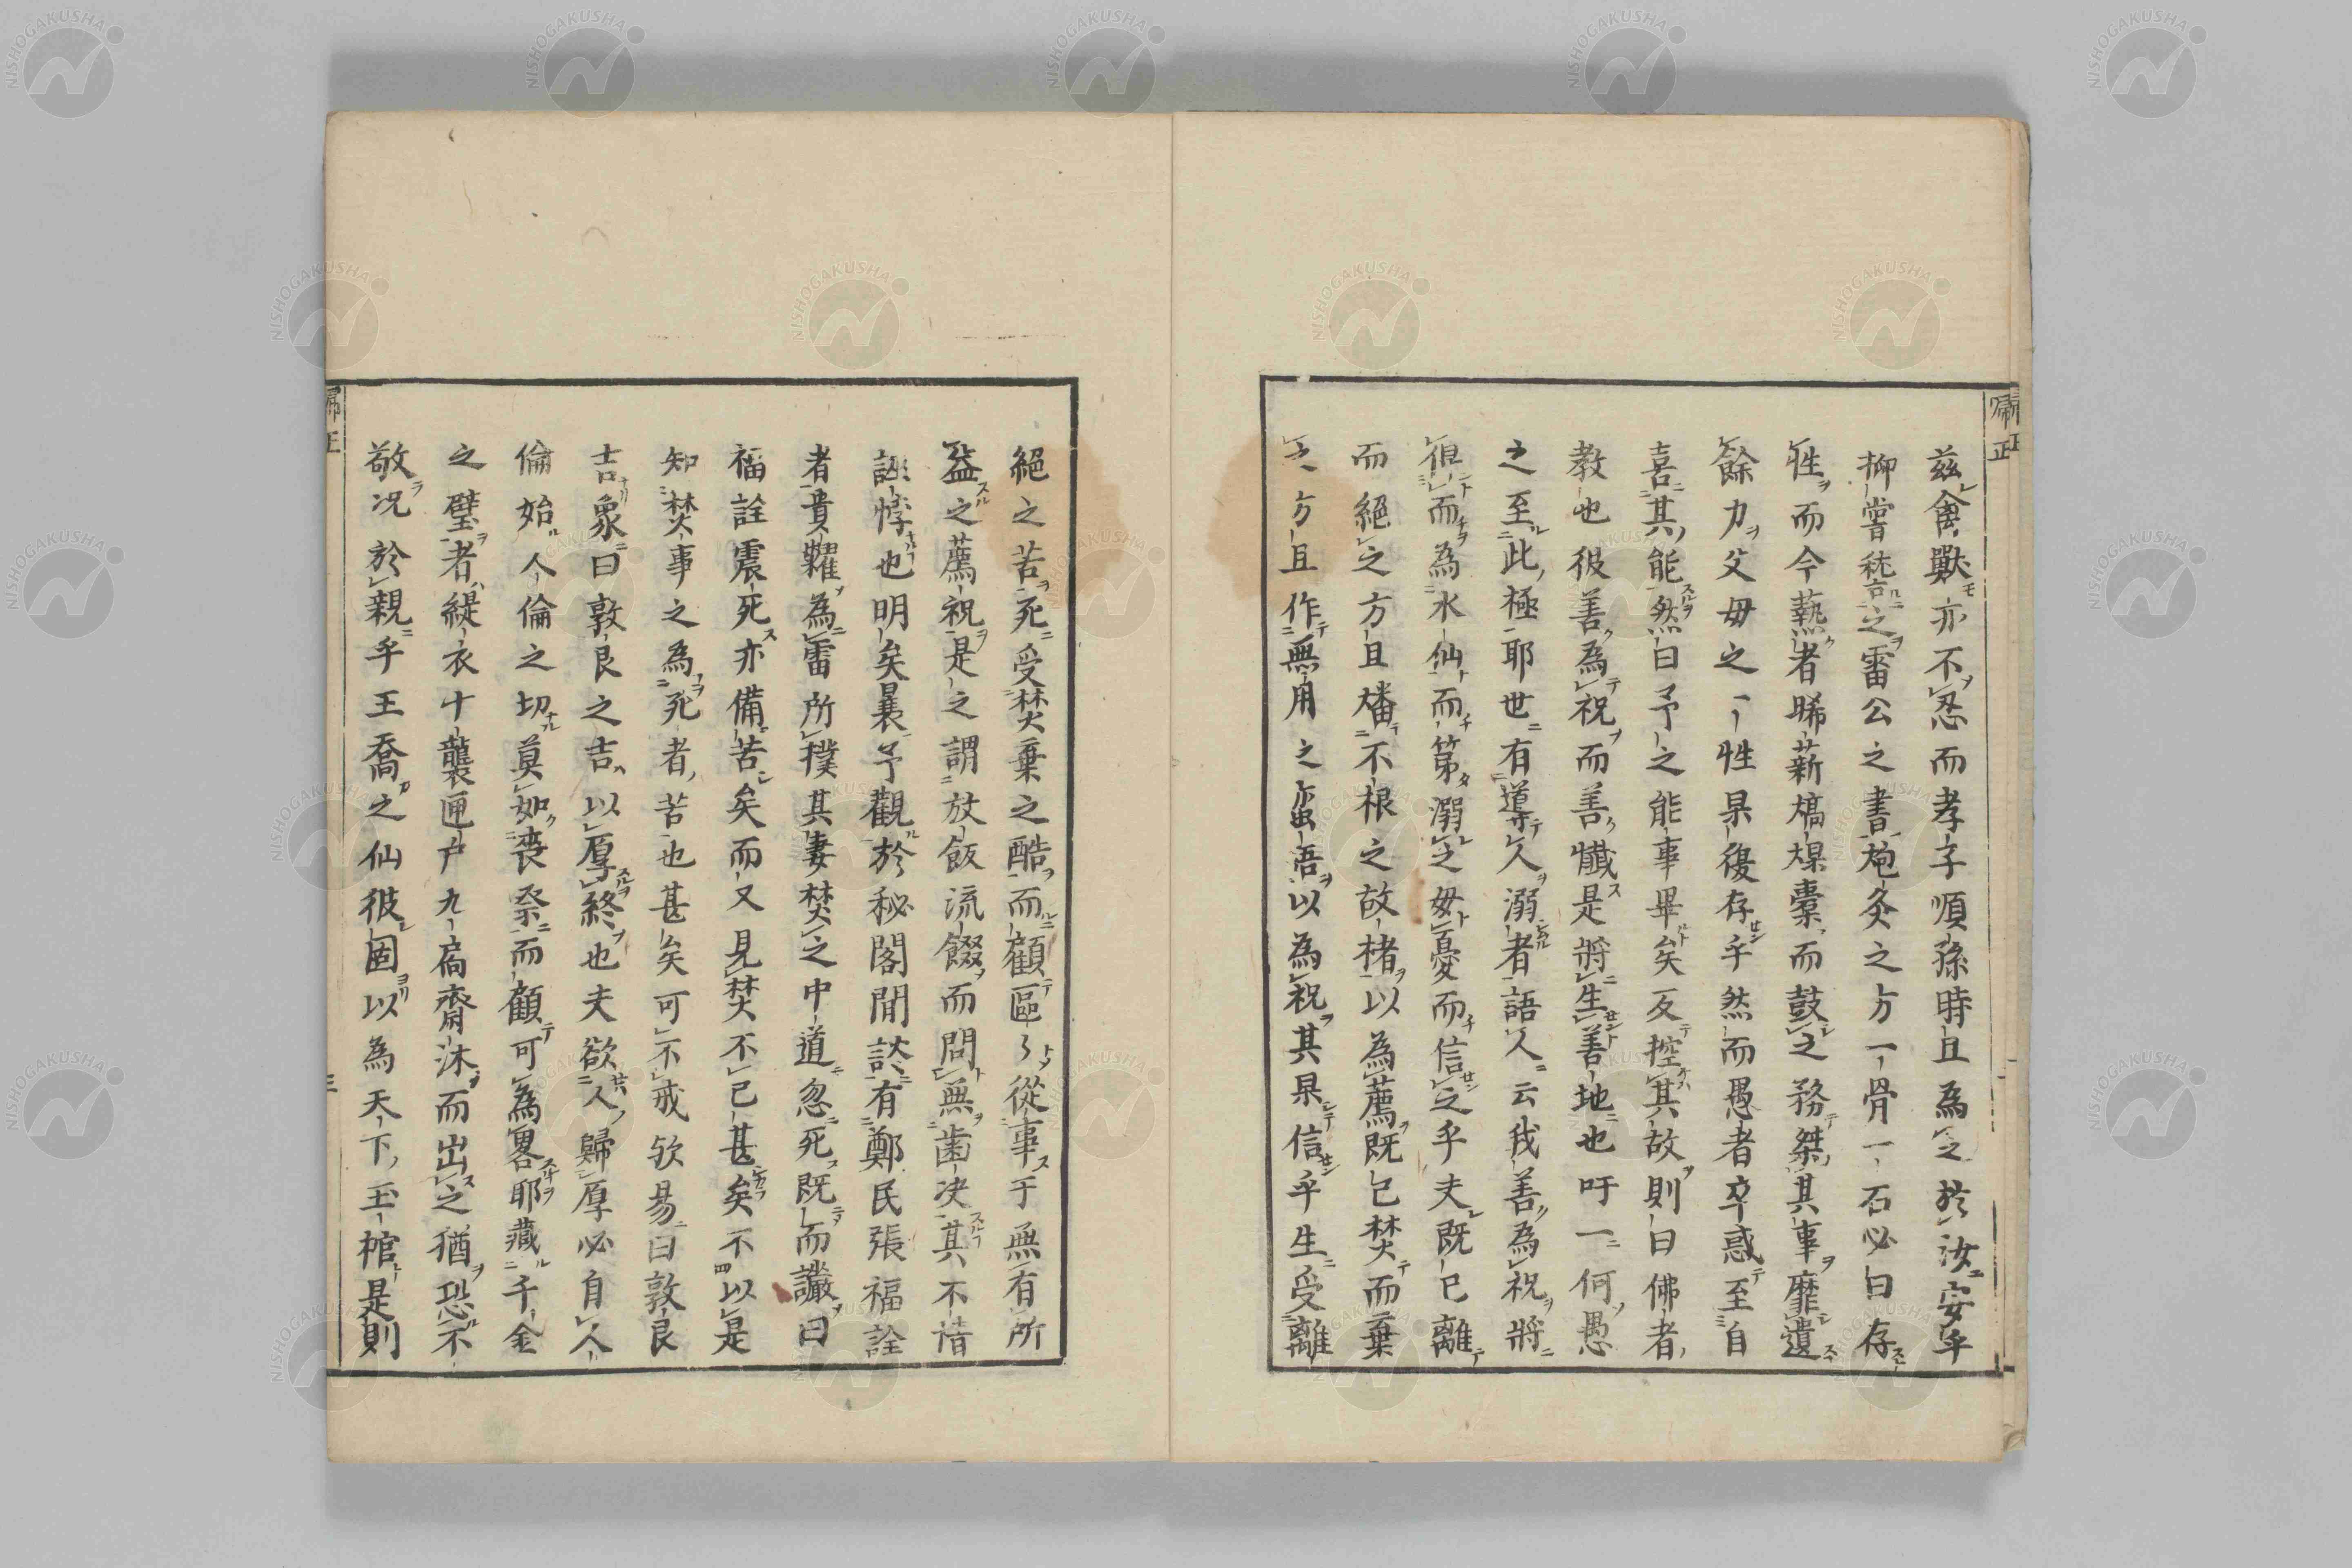 茲禽獸亦不忍而孝子順孫時且為之於汝安乎
抑嘗嵇之雷公之書炮灸之方一骨一石必曰存
性而今爇者晞薪槁熚橐而鼓之務桀其事靡遺
餘力父母之一性果復存乎然而愚者卒惑至自
喜其能然曰予之能事畢矣反控其故則曰佛者
教也彼善為祝而善懺是將生善地也吁一何愚
之至此極耶世有導人溺者語人云我善為祝將
俾而為水仙而第溺之毋憂而信之乎夫既已離
而絕之方且燔不根之故楮以為薦既已焚而棄
之方且作無用之蛮語以為祝其果信乎生受離
絕之苦死受焚棄之酷而顧區〻從事于無有所
益之薦祝是之謂放飯流餟而問無齒决其不惜
誖也明矣曩予觀於秘閣間談有鄭民張福詮
者貴糶為雷所撲其妻焚之中道忽死既而讝曰
福詮震死亦備苦矣而又見焚不已甚矣不以是
知焚事之為死者苦也甚矣可不戒欤易曰敦艮
吉象曰敦艮之吉以厚終也夫欲人歸厚必自人
倫始人倫之切莫如喪祭而顧可為畧耶藏千金
之璧者緹衣十襲匣户九扃齋沐而出之猶恐不
敬况於親乎王喬之仙彼固以為天下玉棺是則
帰正
帰正
三
NISHOGAKUSHA